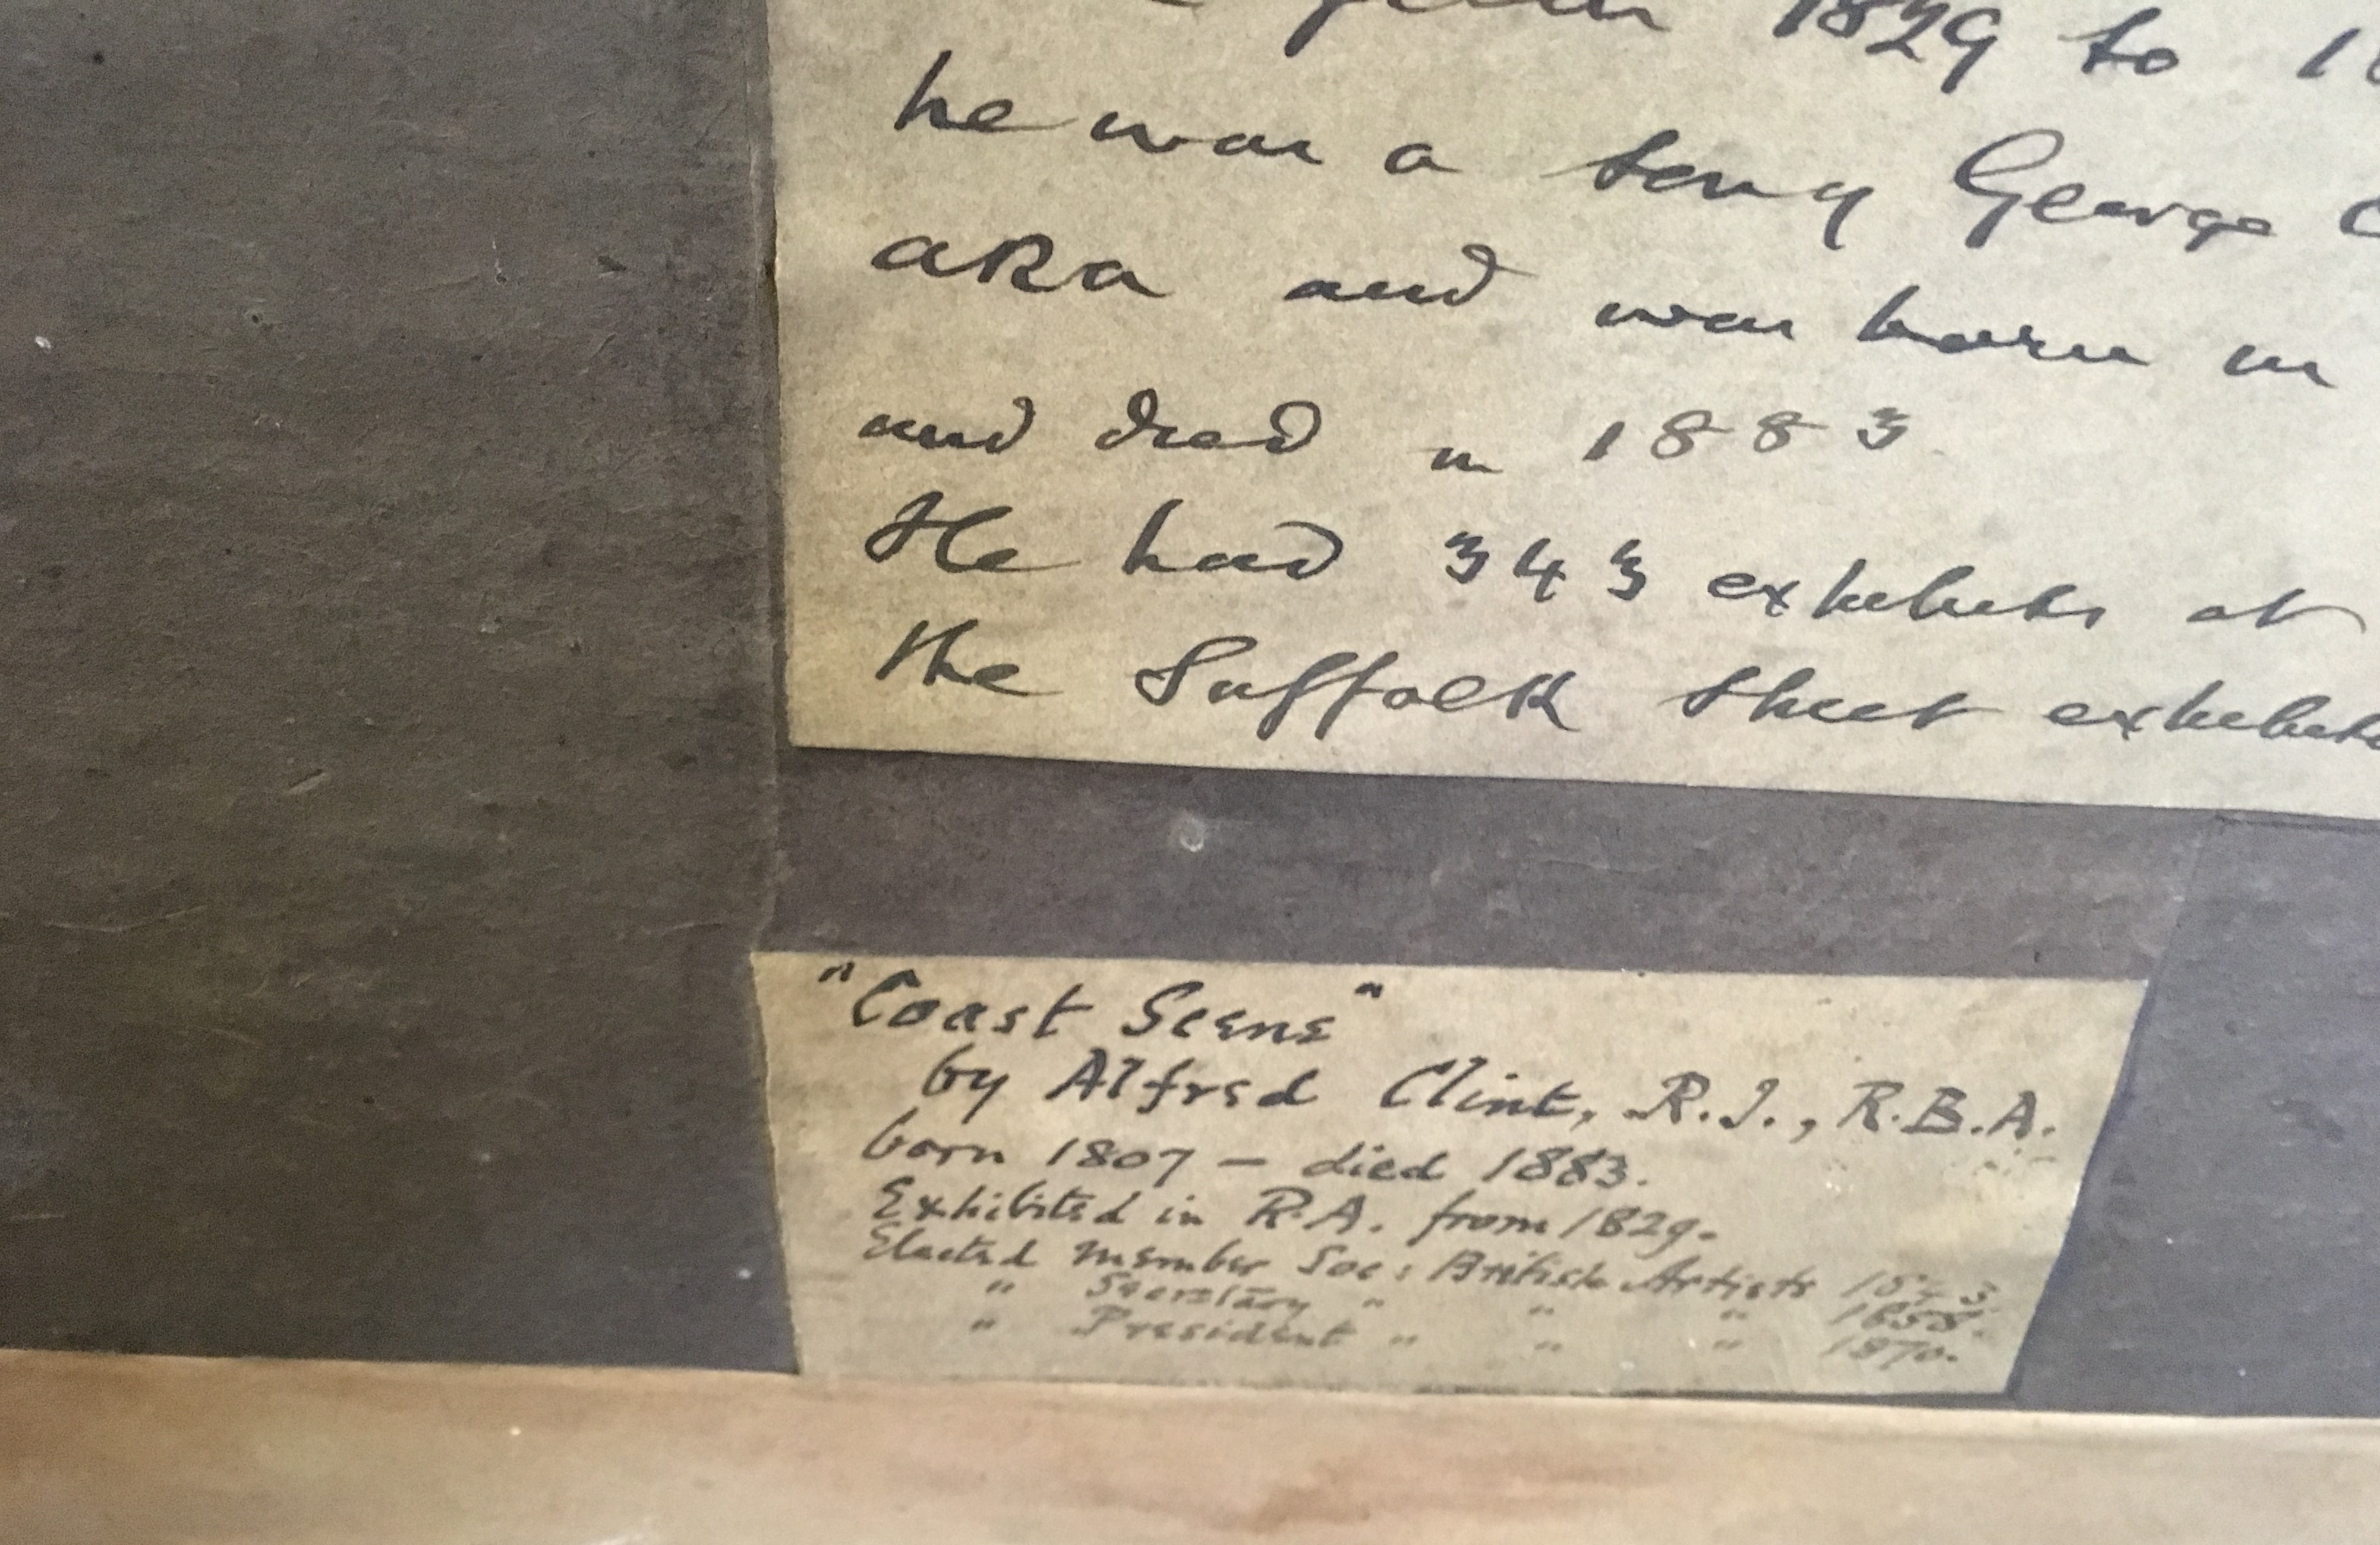 from 1829 to
he was a son of George
ARA and was born in
and died in 1883
He had 343 exhibits at
the Suffolk Street
"Coast Scene"
by Alfred Clint, R.I., R.B.A.
born 1807 — died 1883.
Exhibited in R.A. from 1829.
Elected member Soc: British Artists 1843.
" Secretary " " " 1858.
" President " " " 1870.